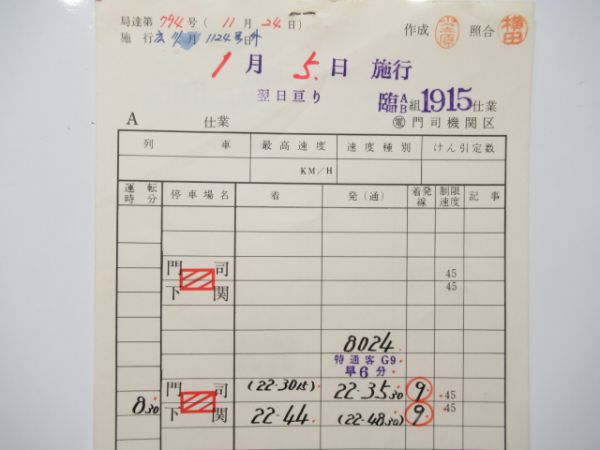 局達第794号(11月24日) 作成 照合 横田
施行 月1124号外
1月5日 施行
翌日亘り 臨A B組1915仕業
A 仕業 電門司機関区
列 車 最高速度 速度種別 けん引定数
KM/H
運転時分 停車場名 着 発(通) 着発線 制限速度 記事
門 司 45
下 関 45
8024
特通客G9
早6分
門 司 (22-30 15) 22-35 30 9 45
8 30 下 関 22-44 (22-48 30) 9 45